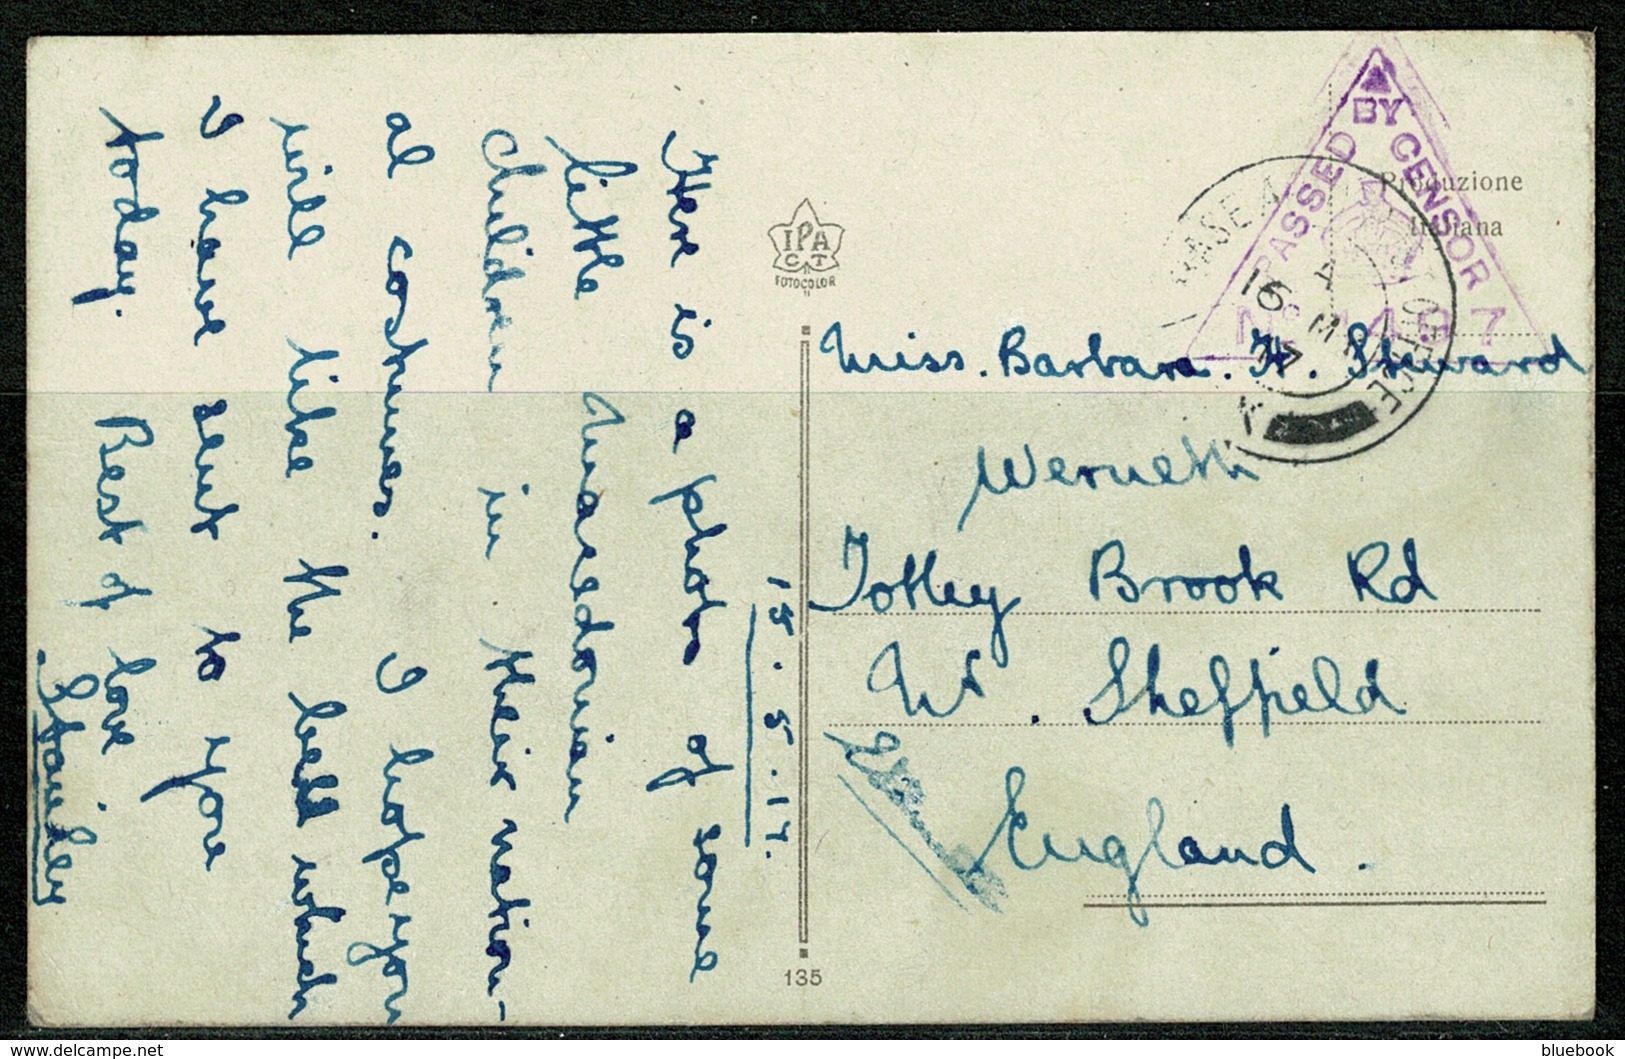 15.5.17.
Here is a photo of some
little Macedonian
children in their nation-
al costumes. I hope you
will like the bell which
I have sent to you
today. Best of love
Stanley
IPA
CT
FOTOCOLOR
135
PASSED BY CENSOR
Produzione
Italiana
BASE A
OFFICE
16 MY
17
Miss. Barbara. H. Steward
Werneth
Totley Brook Rd
Nr. Sheffield
England.
delcampe.net
bluebook